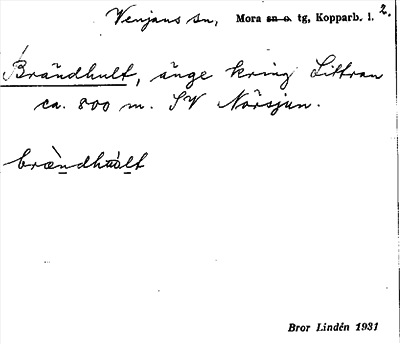 Venjans sn, Mora sn o. tg, Kopparb. l. 2.
Brändhult, änge kring Littran
ca. 800 m. SV Norsjun.
bræ̀ndhult
Bror Lindén 1931